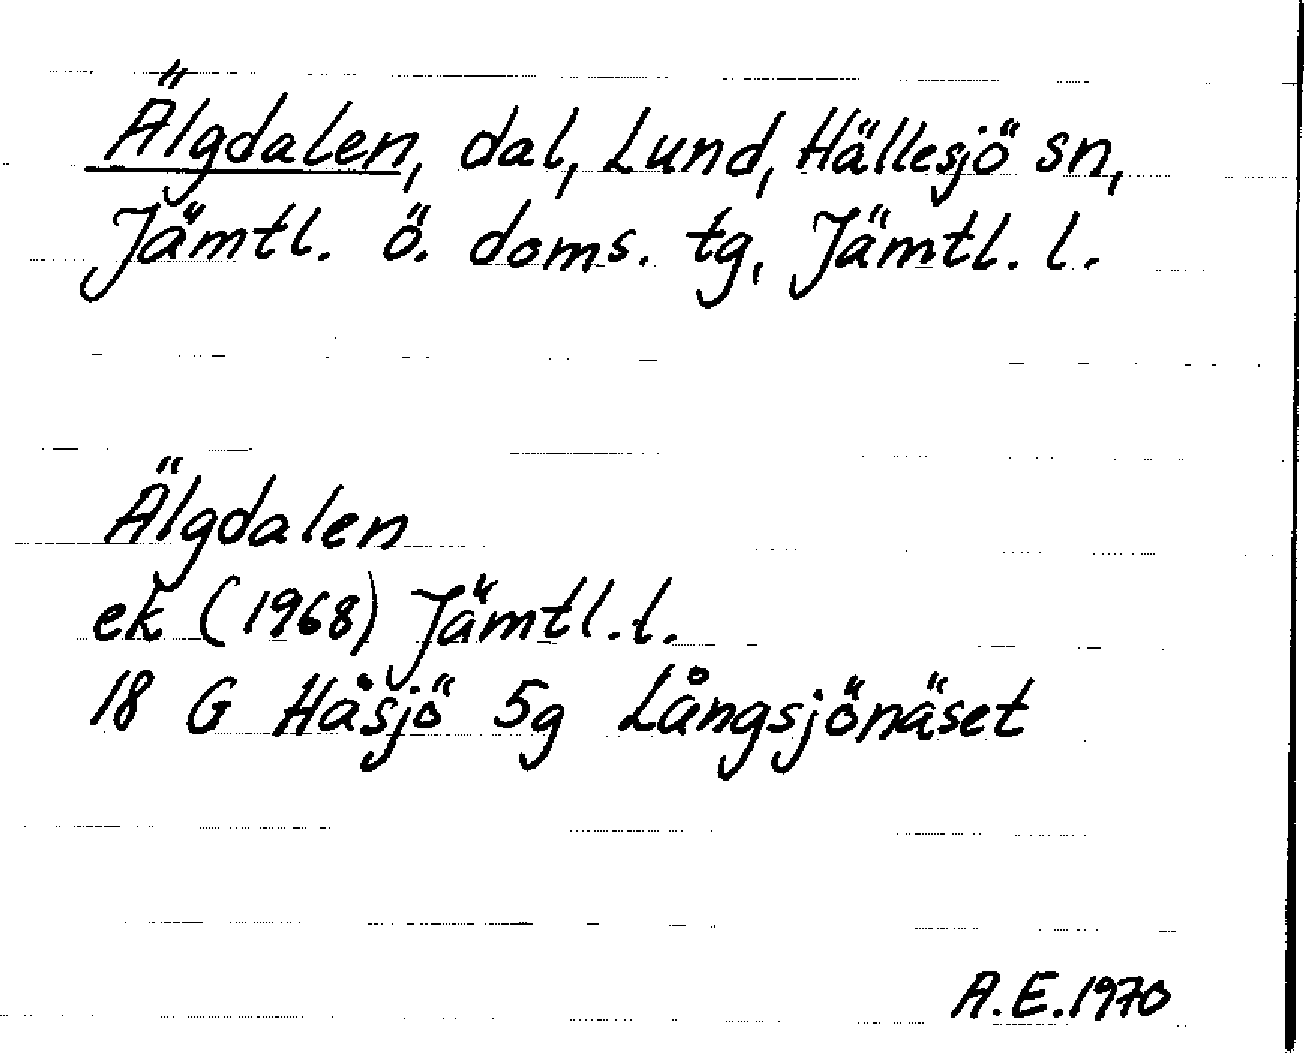 Älgdalen, dal, Lund, Hällesjö sn,
Jämtl. ö. doms. tg, Jämtl. l.
Älgdalen
ek (1968) Jämtl. l.
18 G Håsjö 5g Långsjönäset
A.E. 1970